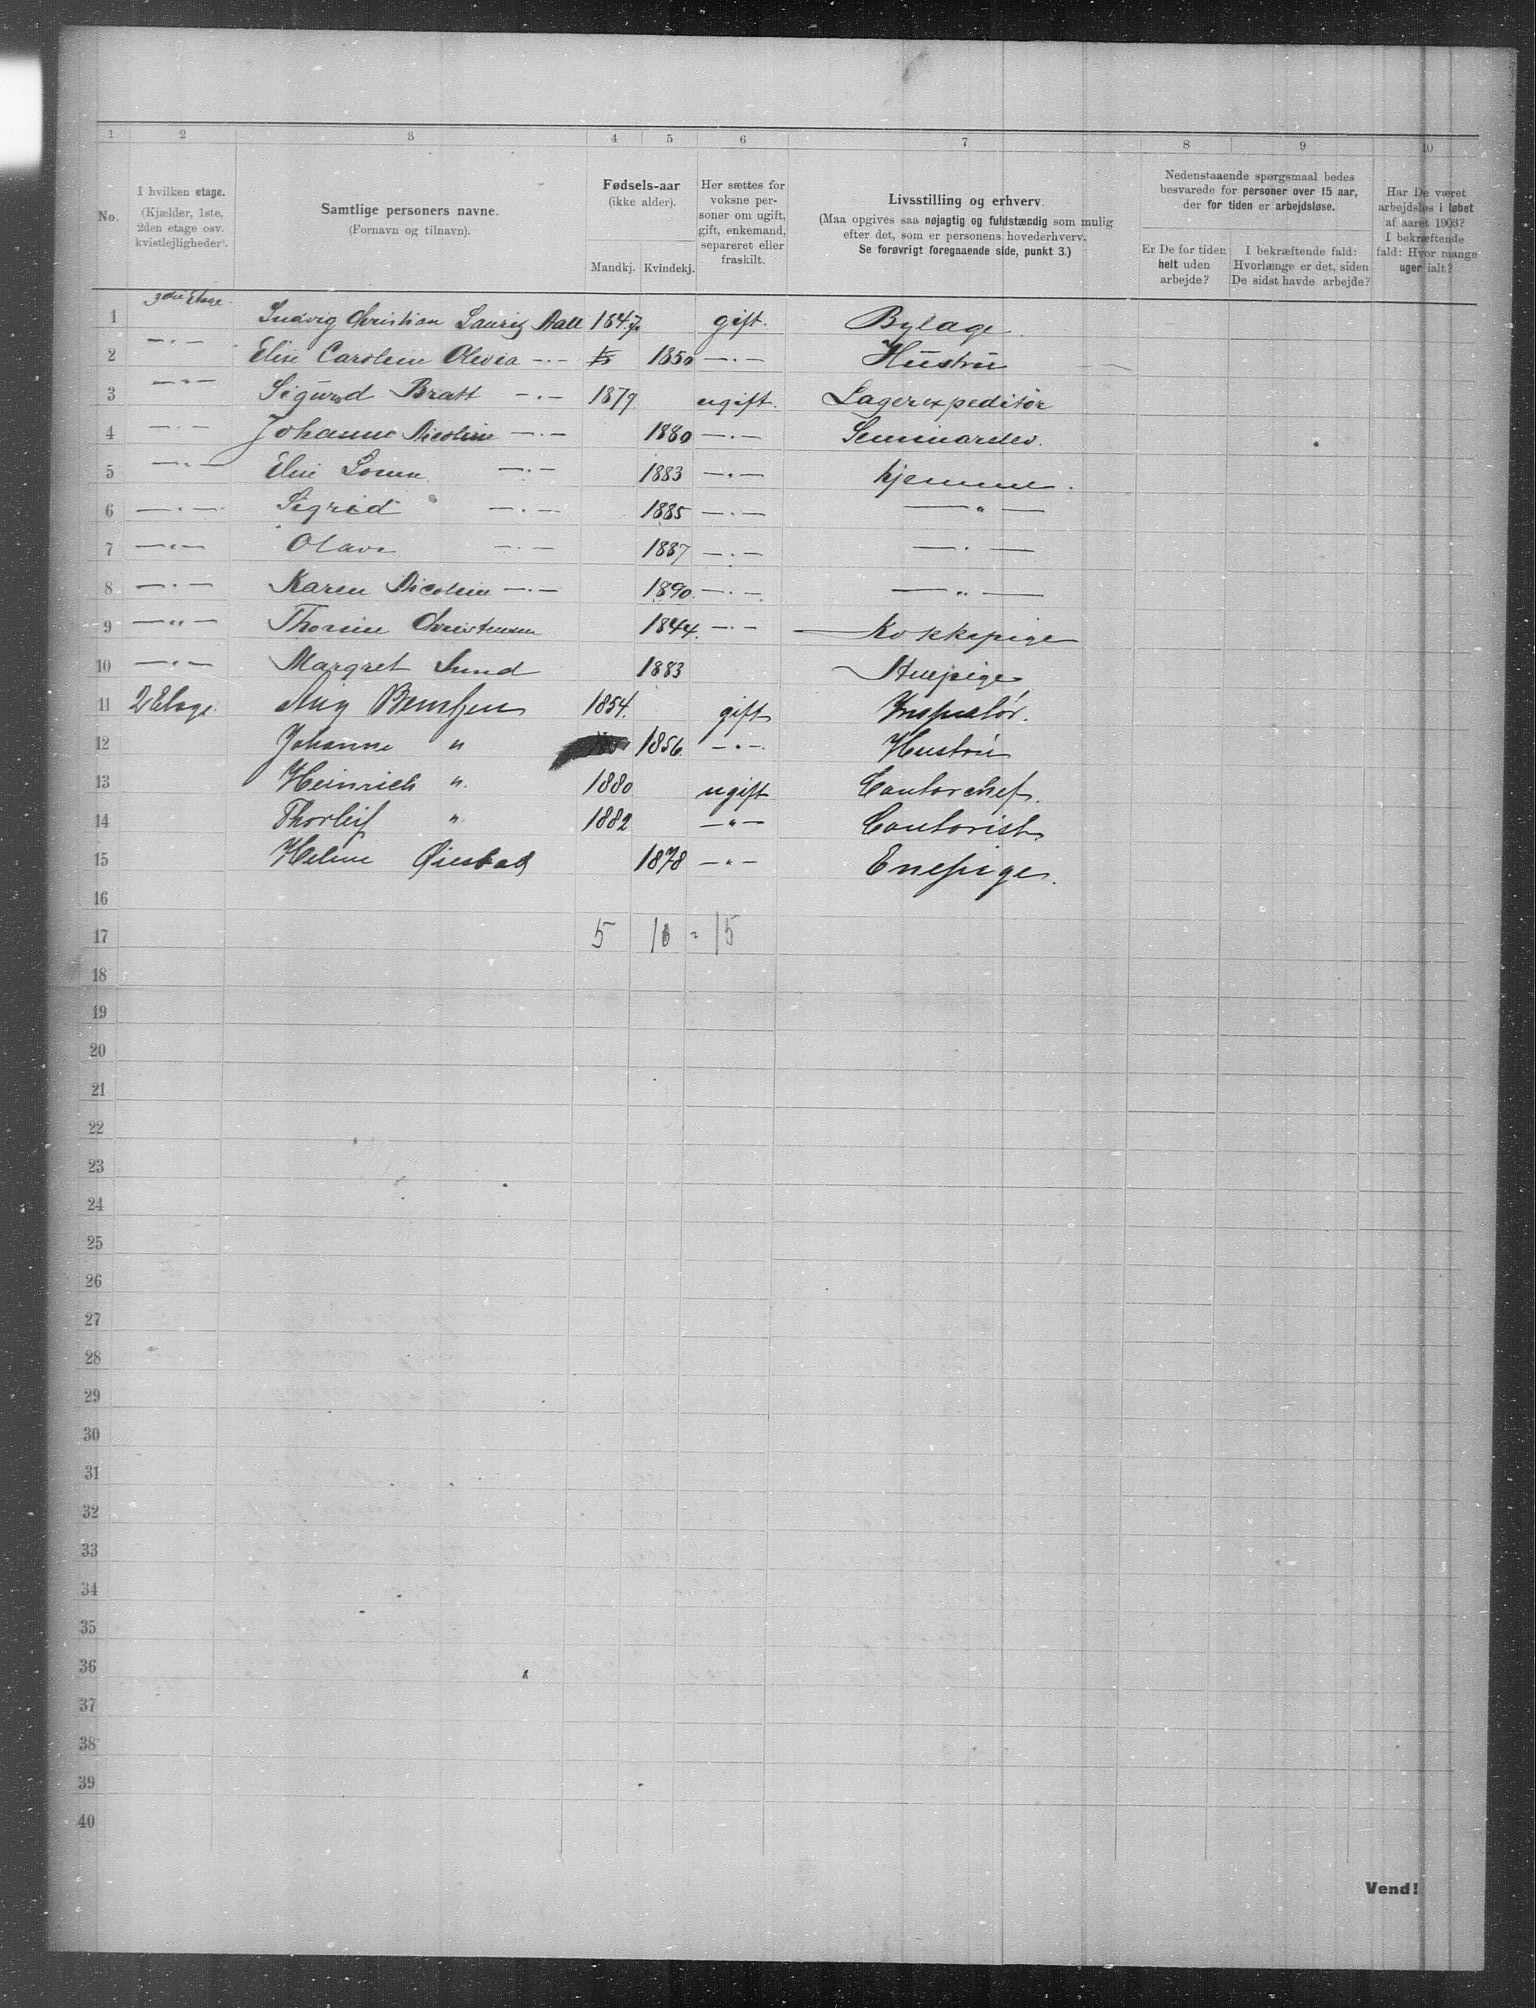 1 2 3 4 5 6 7 8 9 10
No.
I hvilken etage.
(Kjælder, 1ste,
2den etage osv.
kvistlejligheder).
Samtlige personers navne.
(Fornavn og tilnavn).
Fødsels-aar
(ikke alder).
Mandkj. Kvindekj.
Her sættes for
voksne per-
soner om ugift,
gift, enkemand,
separeret eller
fraskilt.
Livsstilling og erhverv.
(Maa opgives saa nøjagtig og fuldstændig som mulig
efter det, som er personens hovederhverv.
Se forøvrigt foregaaende side, punkt 3.)
Nedenstaaende spørgsmaal bedes
besvarede for personer over 15 aar,
der for tiden er arbejdsløse.
Er De for tiden
helt uden
arbejde?
I bekræftende fald:
Hvorlænge er det, siden
De sidst havde arbejde?
Har De været
arbejdsløs i løbet
af aaret 1903?
I bekræftende
fald: Hvor mange
uger ialt?
1 3die Etage. Ludvig Christian Lauritz Aall 1847 gift. Bylæge
2 —"— Elise Caroline Olivia —"— 1850 —"— Hustru
3 —"— Sigurd Bratt —"— 1879 ugift. Lagerexpeditør
4 —"— Johanne Nicoline —"— 1880 —"— Seminarelev.
5 —"— Elise —"— 1883 —"— hjemme.
6 —"— Sigrid —"— 1885 —"— —"—
7 —"— Olava —"— 1887 —"— —"—
8 —"— Karen Nicoline —"— 1890 —"— —"—
9 —"— Thorine Christensen 1844. —"— Kokkepige
10 —"— Margret Lund 1883 Stuepige
11 2 Etage. Berntzen 1854. gift Inspektør.
12 Johanne " 1856 —"— Hustru
13 Heinrich " 1880 ugift Contorchef.
14 Thorleif " 1882 —"— Contorist
15 Helene Øiestad 1878 —"— Enepige.
16
17 5 10 = 15
18
19
20
21
22
23
24
25
26
27
28
29
30
31
32
33
34
35
36
37
38
39
40
Vend!